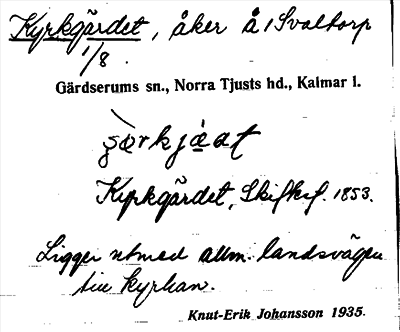 Kyrkgärdet, åker å 1 Svaltorp
1/8.
Gärdserums sn., Norra Tjusts hd., Kalmar l.
Kyrkgärdet, Skifksf. 1853.
Ligger utmed allm. landsvägen
till kyrkan.
Knut-Erik Johansson 1935.